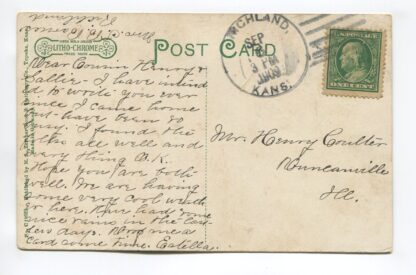 LITHO-CHROME
POST CARD
RICHLAND,
SEP
3 PM
1909
KANS.
U.S. POSTAGE
ONE CENT
Dear Cousin Henry &
Sallie: I have intend
ed to write you ever
since I came home
but have been so
busy. I found the
folks all well and
every thing O.K.
Hope you are both
well. We are having
some very cool weath
er here. Have had some
nice rains in the last
few days. Drop me a
card some time. Estella.
Mr. Henry Coulter
Duncanville
Ill.
Richland
Kans